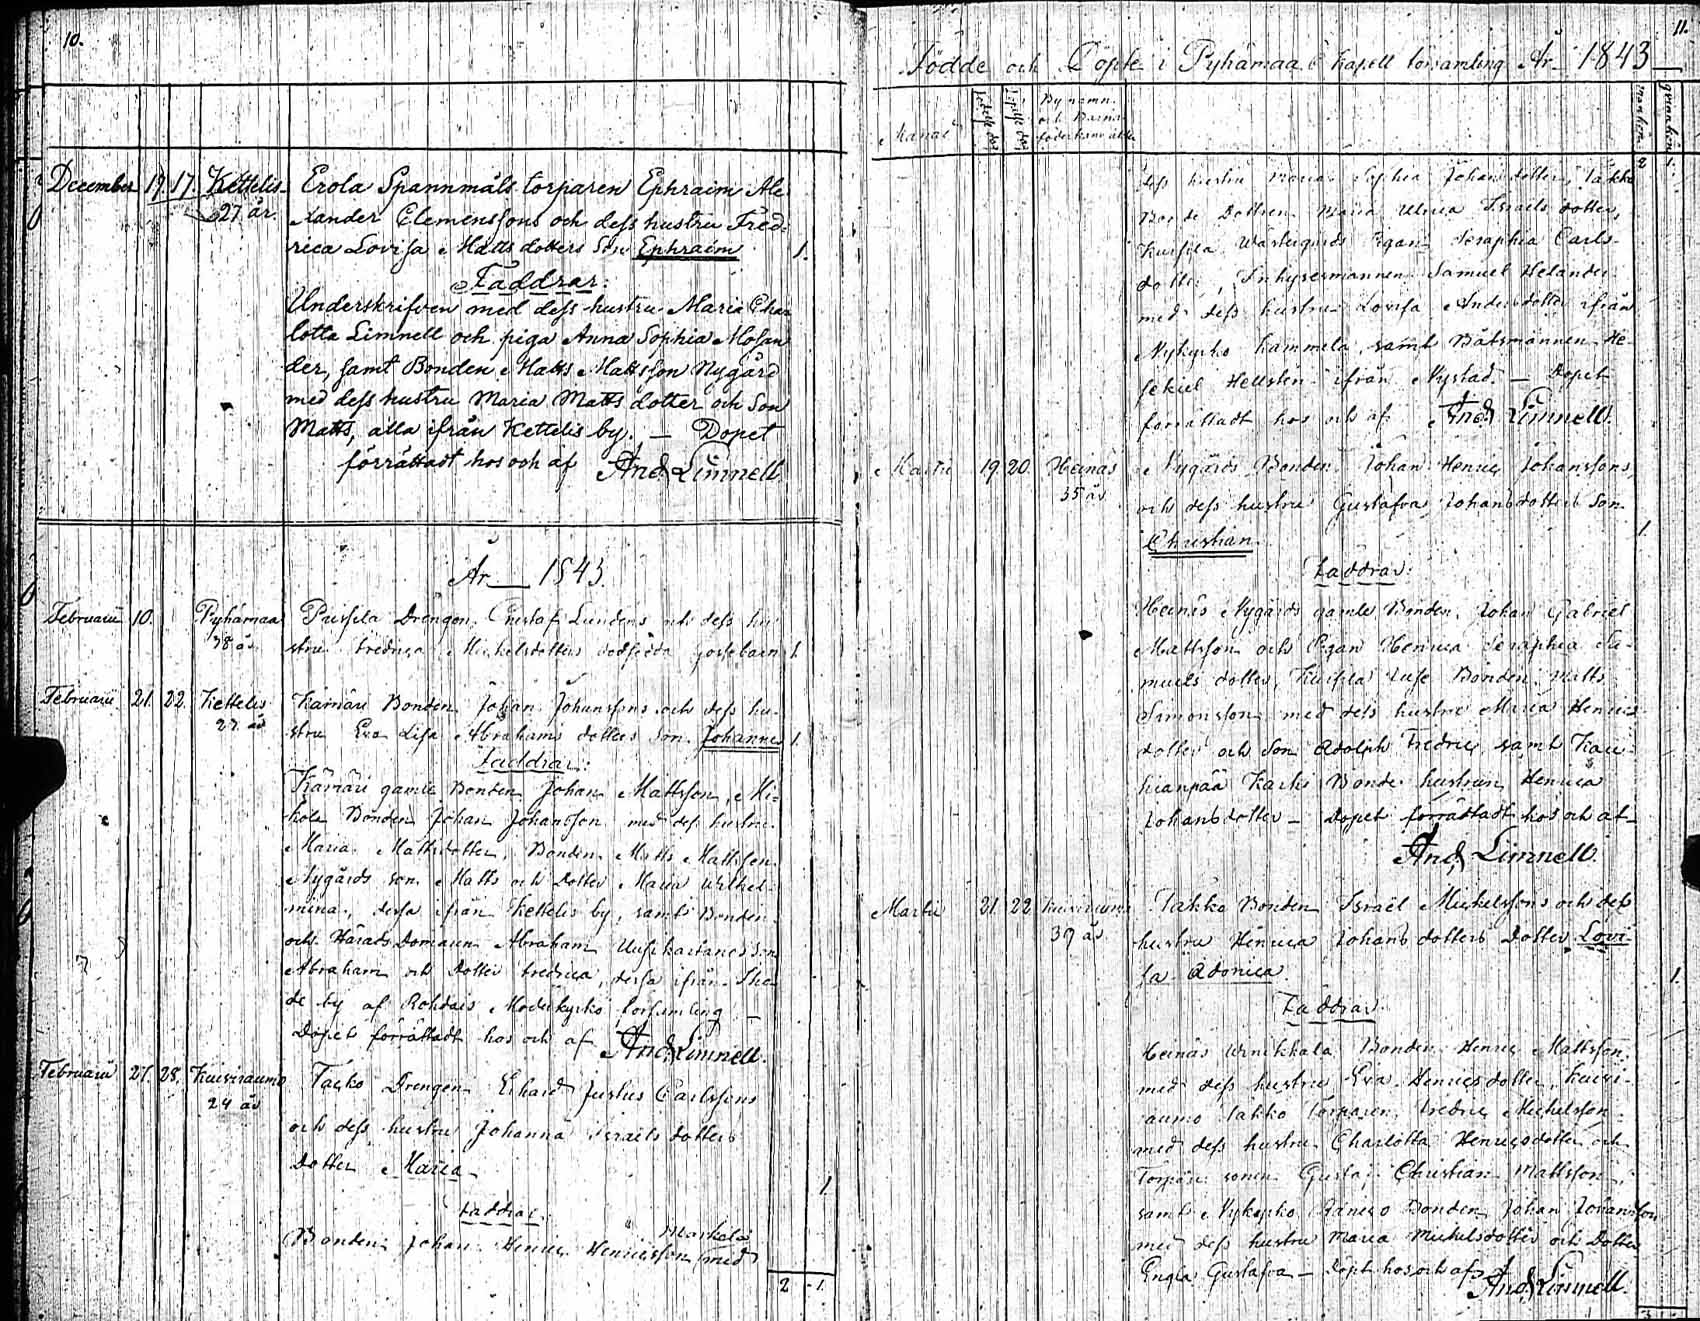 10.
December 17. 17. Kettelis Erola Spannmåls torparen Ephraim Ale
27 år. xander Clemenssons och dess hustru Fred-
rica Lovisa Matts dotters Son Ephraim 1.
Faddrar:
Underskrifven med dess hustru Maria Char
lotta Limnell och piga Anna Sophia Mosan
der, samt Bonden Matts Mattsson Nygård
med dess hustru Maria Matts dotter och Son
Matts, alla ifrån Kettelis by. — Dopet
förrättadt hos och af And. Limnell
År 1843.
Februarii 10. Pyhämaa Drengen Gustaf Lundens och dess hu
38 år stru Fredrica Michelsdotters dödfödda gossebarn 1.
Februarii 21. 22. Kettelis Kämäri Bonden Johan Johanssons och dess hu-
27 år stru Eva Lisa Abrahams dotters Son Johannes 1.
Faddrar:
Kämäri gamle Bonden Johan Mattsson, Mi-
kola Bonden Johan Johansson med dess hustru
Maria Mattsdotter, Bonden Matts Mattsson
Nygårds son Matts och Dotter Maria Wilhel-
mina, dessa ifrån Kettelis by, samt Bonden
och Härads Domaren Abraham Uusikartanos Son
Abraham och Dotter Fredrica, dessa ifrån
de by af Moderkyrko församling —
Dopet förrättadt hos och af And. Limnell.
Februarii 27. 28. Kuivirauma Tacko Drengen Erhard Justus Carlssons
24 år
och dess hustru Johanna Israels dotters
Dotter Maria 1.
Faddrar:
Markola
Bonden Johan Henric Henricsson med
2 1.
11.
Födde och Döpte i Pyhämaa Kapell församling År 1843
Månad Födelse dag Döpelse dag Bynamn och Barna föderskans ålder Mankön Qvinkön
2 1.
dess hustru Maria Sophia Johans dotter, Takko
Bonde Dottren Maria Ulrica Israels dotter,
Wästergårds Pigan Seraphia Carls-
dotter, Inhysesmannen Samuel Helander
med dess hustru Lovisa Anders dotter ifrån
Nykyrko Kammela, samt Båtsmannen He-
sekiel Hellsten ifrån Nystad — Dopet
förrättadt hos och af And. Limnell.
Martii 19. 20. Heinäs Nygårds Bonden Johan Henric Johanssons
35 år
och dess hustru Gustafva Johansdotters Son
Christian 1.
Faddrar:
Heinäs Nygårds gamle Bonden Johan Gabriel
Mattsson och Pigan Henrica Seraphia Sa-
muels dotter, Bonden Matts
Simonsson med dess hustru Maria Henrics
dotter och Son Adolph Fredric, samt Kau-
hianpää Karhi Bonde hustrun Henrica
Johansdotter — Dopet förrättadt hos och af
And. Limnell.
Martii 21. 22. Kuivirauma Takko Bonden Israël Michelssons och dess
39 år hustru Henrica Johans dotters Dotter Lovi-
sa Adonica 1.
Faddrar:
Heinäs Bonden Henric Mattsson
med dess hustru Eva Henricsdotter, Kuivi-
raumo Takko Torparen Fredric Michelsson
med dess hustru Charlotta Henricsdotter och
Torpare sonen Gustaf Christian Mattsson,
samt Nykyrko Bonden Johan Johansson
med dess hustru Maria Michelsdotter och Dotter
Engla Gustafva — Döpt hos och af And. Limnell.
3